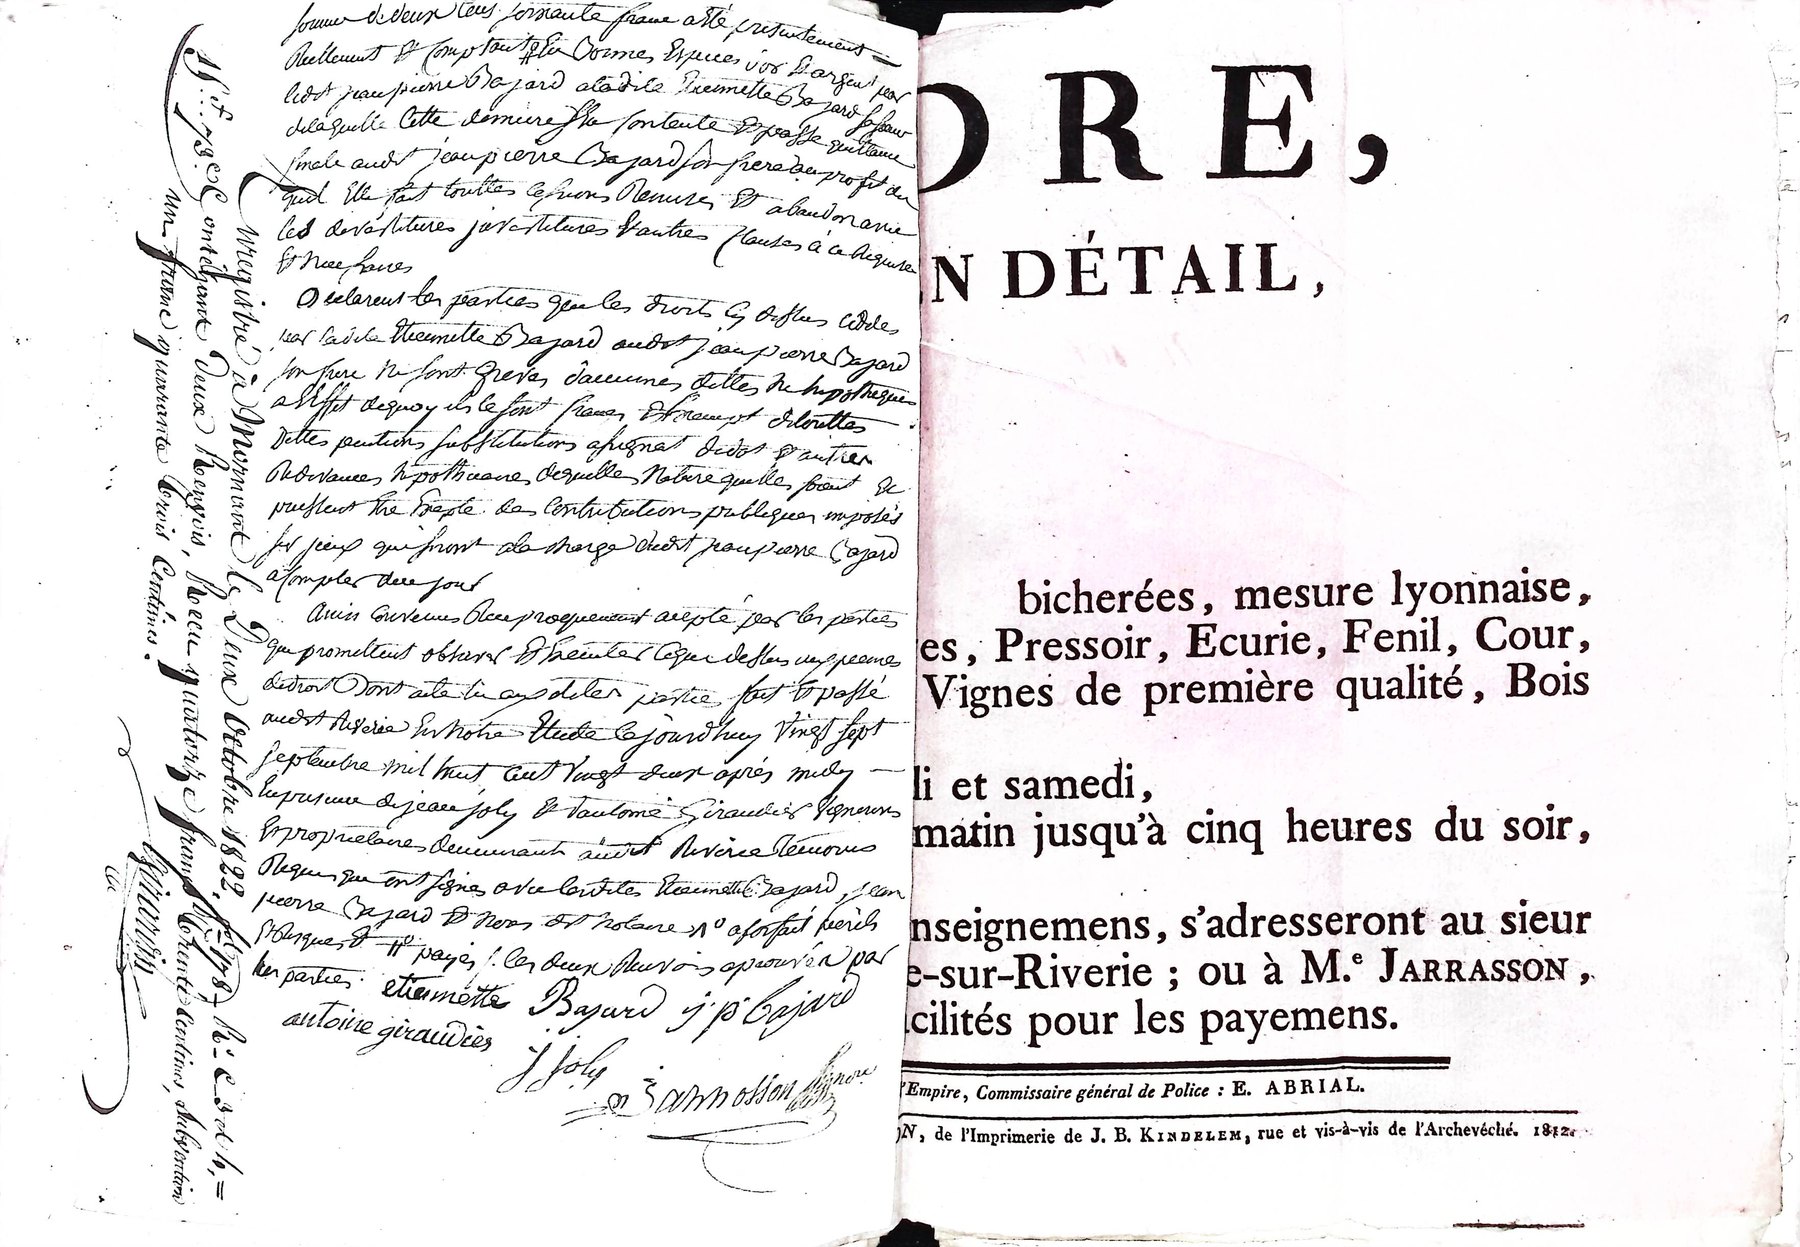 somme de deux cens soixante franc a été presentement
Réellement et comptant # En bonnes Espèces d'or et argent par
ledit jeanpierre Bajard a ladite Etiennette Bajard sa sœur
de laquelle cette derniere sest contente et passe quittance
finale audit jeanpierre Bajard son frere au profit du
quel Elle fait touttes cessions Remises et abandon avec
les devestitures jnvestitures et autres clauses à ce Requises
et necessaires
Declarent les parties que les droits cy dessus cédés
par ladite Etiennette Bajard audit jeanpierre Bajard
son frere ne sont Grevés d'aucunes dettes ne hypotheques
a Effet de quoy ils le sont francs et Exempt de touttes
Dettes pentions substitutions et autres
Redevances hypothecaires de quelles Nature quelles soient et
puissent être Excepté des Contributions publiques imposés
sur jceux qui seront a la charge dudit jeanpierre Bajard
a compter de ce jour
Ainsi convenus Reciproquement accepté par les parties
qui promettent observer et Executer ce que dessus aux peines
de droit Dont acte lu aux dites partie fait et passé
audit Riverie En notre Etude cejourdhuy vingt sept
septembre mil huit cent vingt deux après midy —
En presence de jean joly et d'antoine Giraudier Vignerons
et proprietaires demeurant audit Riverie Témoins
Requis qui ont signés avec lesdites Etiennette Bajard, jean
pierre Bajard et nous dit notaire
et Risques et # payés /. les deux Renvois aprouvéz par
les parties. etiennette Bajard j p bajard
antoine giraudier
J Joly
Jarrosson
Enregistré à Mornant le Deux Octobre 1822. f.° 78 R.° C. 3 et 4, =
Contenant Deux Renvois, Reçu quatorze francs Trente Centimes, subvention
un franc quarante trois Centimes.
DRE,
EN DÉTAIL,
bicherées, mesure lyonnaise,
es, Pressoir, Ecurie, Fenil, Cour,
Vignes de première qualité, Bois
di et samedi,
matin jusqu'à cinq heures du soir,
nseignemens, s'adresseront au sieur
e-sur-Riverie ; ou à M.e JARRASSON,
cilités pour les payemens.
l'Empire, Commissaire général de Police : E. ABRIAL.
ON, de l'Imprimerie de J. B. KINDELEM, rue et vis-à-vis de l'Archevêché. 1812.